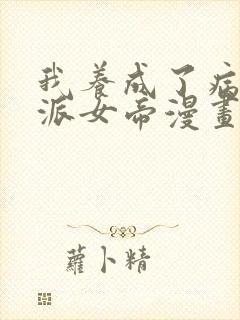 我養成了病
派女帝漫畫
蘿卜精